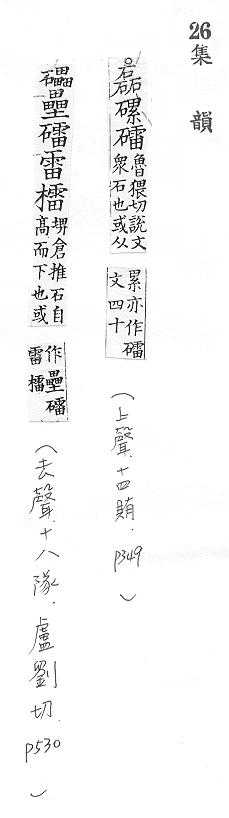 26集韻
磊磥礌魯猥切說文
衆石也或从
累亦作礌
文四十
(上聲.十四賄.p349)
礧壘礌雷檑埤倉推石自
高而下也或
作壘礌
雷檑
(去聲.十八隊.盧劉切.p530)